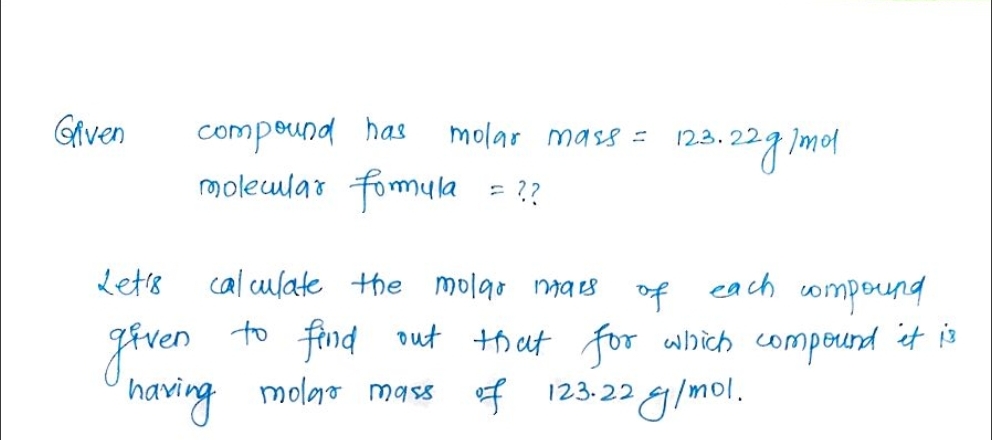 Given compound has molar mass = 123.22g/mol
molecular formula = ??
Let's calculate the molar mass of each compound
given to find out that for which compound it is
having molar mass of 123.22 g/mol.